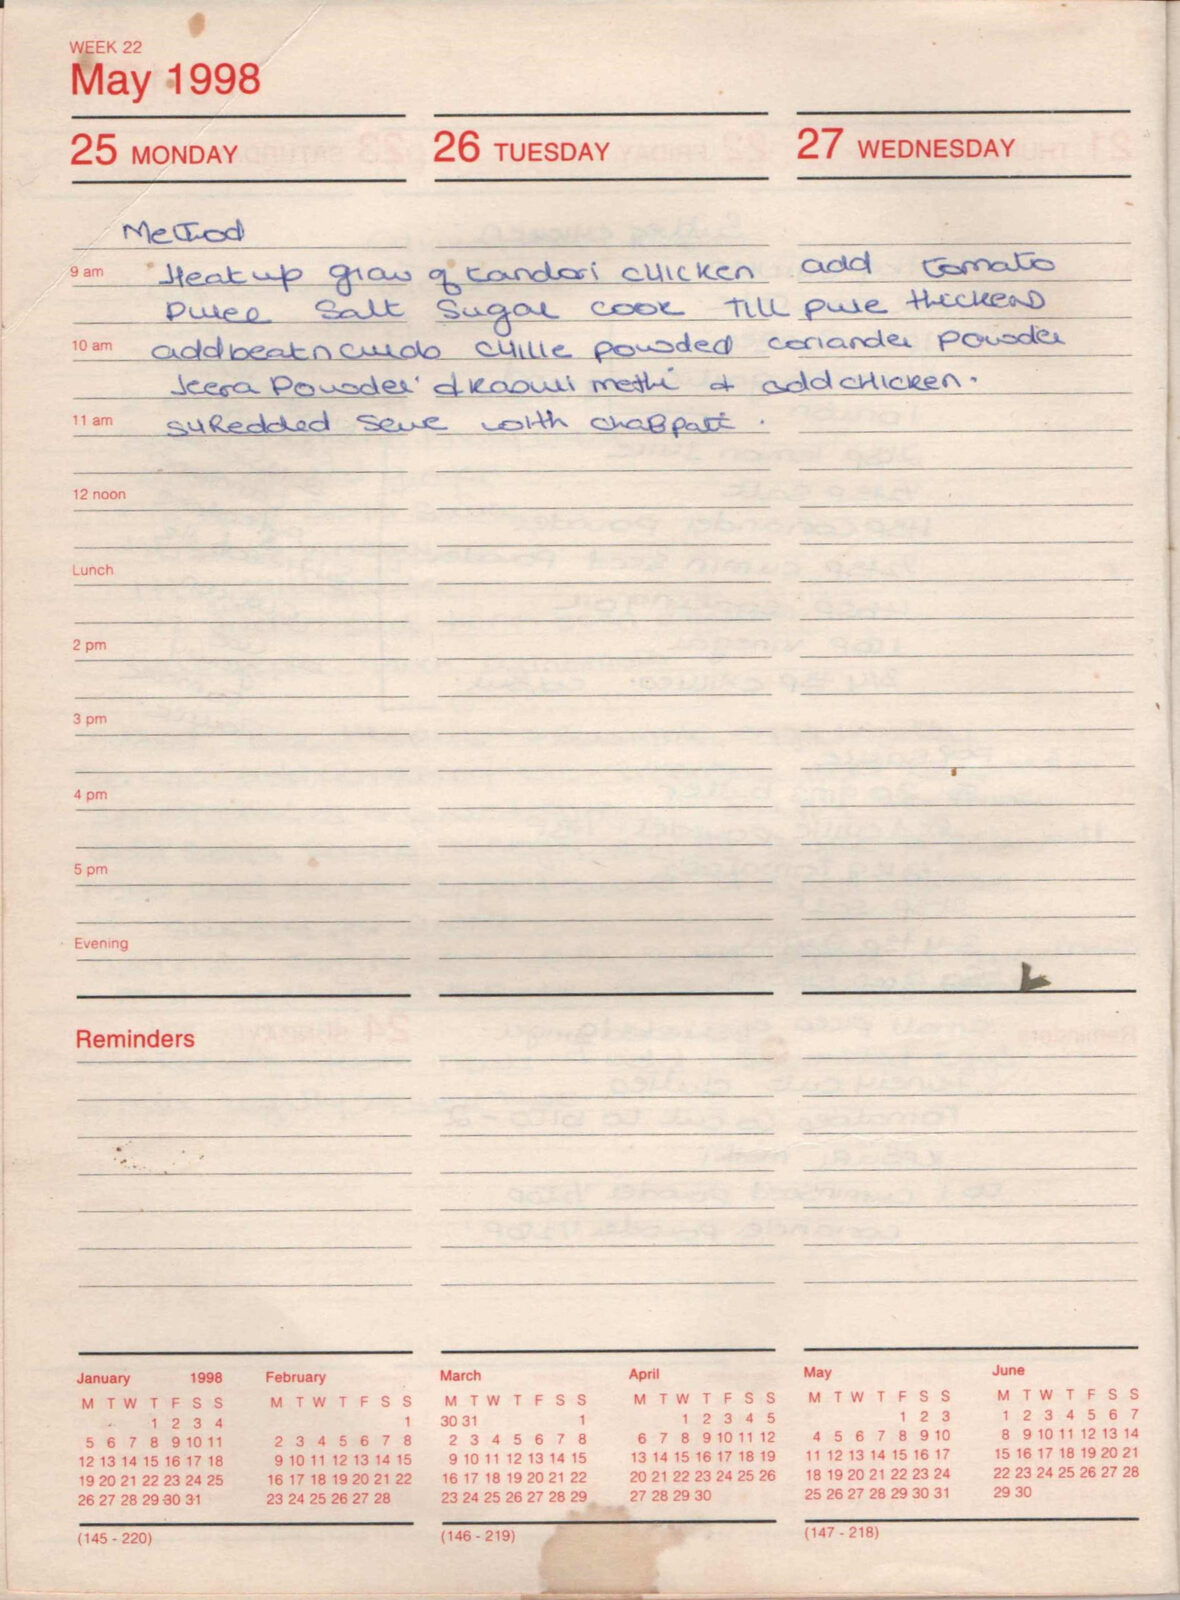 WEEK 22
May 1998
25 MONDAY 26 TUESDAY 27 WEDNESDAY
Method
9 am Heat up grav of tandori chicken add tomato
Puree Salt Sugar cook Till pure thickens
10 am add beat n curds chille powded coriander powder
Jeera Powder & kasuri methi & add chicken.
11 am shredded serve with chappati.
12 noon
Lunch
2 pm
3 pm
4 pm
5 pm
Evening
Reminders
January 1998 February March April May June
M T W T F S S M T W T F S S M T W T F S S M T W T F S S M T W T F S S M T W T F S S
1 2 3 4 1 30 31 1 1 2 3 4 5 1 2 3 1 2 3 4 5 6 7
5 6 7 8 9 10 11 2 3 4 5 6 7 8 2 3 4 5 6 7 8 6 7 8 9 10 11 12 4 5 6 7 8 9 10 8 9 10 11 12 13 14
12 13 14 15 16 17 18 9 10 11 12 13 14 15 9 10 11 12 13 14 15 13 14 15 16 17 18 19 11 12 13 14 15 16 17 15 16 17 18 19 20 21
19 20 21 22 23 24 25 16 17 18 19 20 21 22 16 17 18 19 20 21 22 20 21 22 23 24 25 26 18 19 20 21 22 23 24 22 23 24 25 26 27 28
26 27 28 29 30 31 23 24 25 26 27 28 23 24 25 26 27 28 29 27 28 29 30 25 26 27 28 29 30 31 29 30
(145 - 220) (146 - 219) (147 - 218)